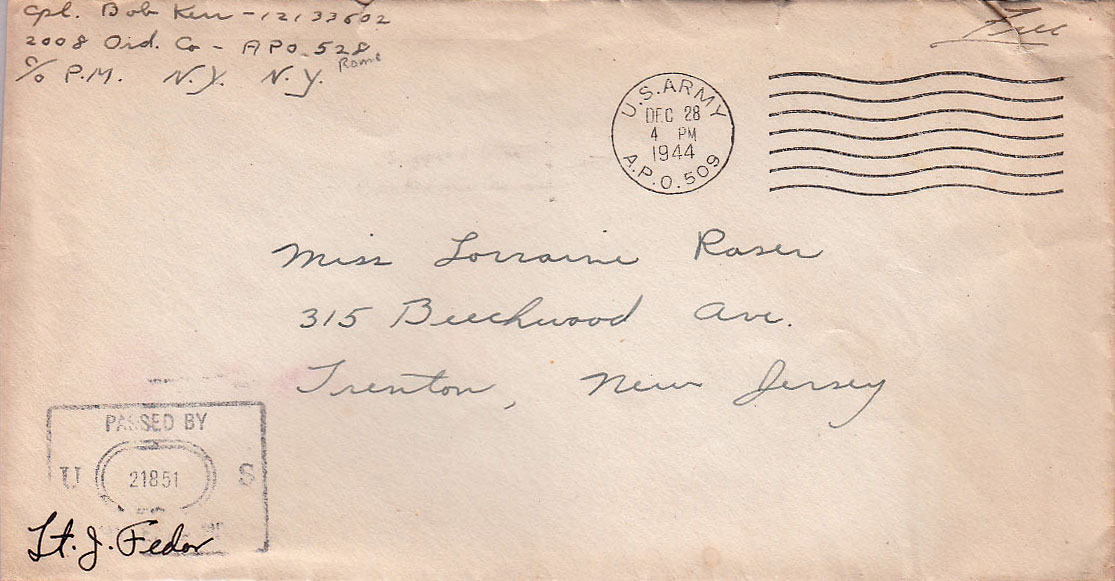 Cpl. Bob Kerr - 12133602
2008 Ord. Co - APO 528
Rome
c/o P.M. N.Y. N.Y.
Free
U.S. ARMY
DEC 28
4 PM
1944
A.P.O. 509
Miss Lorraine Raser
315 Beechwood Ave.
Trenton, New Jersey
PASSED BY
U 21851 S
Lt. J. Fedor